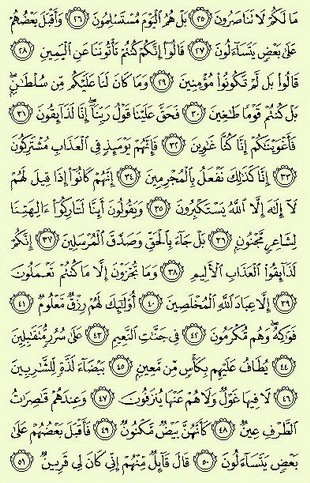 مَا لَكُمْ لَا تَنَاصَرُونَ ٢٥ بَلْ هُمُ الْيَوْمَ مُسْتَسْلِمُونَ ٢٦ وَأَقْبَلَ بَعْضُهُمْ
عَلَىٰ بَعْضٍ يَتَسَاءَلُونَ ٢٧ قَالُوا إِنَّكُمْ كُنتُمْ تَأْتُونَنَا عَنِ الْيَمِينِ ٢٨
قَالُوا بَل لَّمْ تَكُونُوا مُؤْمِنِينَ ٢٩ وَمَا كَانَ لَنَا عَلَيْكُم مِّن سُلْطَانٍ
بَلْ كُنتُمْ قَوْمًا طَاغِينَ ٣٠ فَحَقَّ عَلَيْنَا قَوْلُ رَبِّنَا إِنَّا لَذَائِقُونَ ٣١
فَأَغْوَيْنَاكُمْ إِنَّا كُنَّا غَاوِينَ ٣٢ فَإِنَّهُمْ يَوْمَئِذٍ فِي الْعَذَابِ مُشْتَرِكُونَ
٣٣ إِنَّا كَذَٰلِكَ نَفْعَلُ بِالْمُجْرِمِينَ ٣٤ إِنَّهُمْ كَانُوا إِذَا قِيلَ لَهُمْ
لَا إِلَٰهَ إِلَّا اللَّهُ يَسْتَكْبِرُونَ ٣٥ وَيَقُولُونَ أَئِنَّا لَتَارِكُو آلِهَتِنَا
لِشَاعِرٍ مَّجْنُونٍ ٣٦ بَلْ جَاءَ بِالْحَقِّ وَصَدَّقَ الْمُرْسَلِينَ ٣٧ إِنَّكُمْ
لَذَائِقُو الْعَذَابِ الْأَلِيمِ ٣٨ وَمَا تُجْزَوْنَ إِلَّا مَا كُنتُمْ تَعْمَلُونَ
٣٩ إِلَّا عِبَادَ اللَّهِ الْمُخْلَصِينَ ٤٠ أُولَٰئِكَ لَهُمْ رِزْقٌ مَّعْلُومٌ ٤١
فَوَاكِهُ وَهُم مُّكْرَمُونَ ٤٢ فِي جَنَّاتِ النَّعِيمِ ٤٣ عَلَىٰ سُرُرٍ مُّتَقَابِلِينَ
٤٤ يُطَافُ عَلَيْهِم بِكَأْسٍ مِّن مَّعِينٍ ٤٥ بَيْضَاءَ لَذَّةٍ لِّلشَّارِبِينَ
٤٦ لَا فِيهَا غَوْلٌ وَلَا هُمْ عَنْهَا يُنزَفُونَ ٤٧ وَعِندَهُمْ قَاصِرَاتُ
الطَّرْفِ عِينٌ ٤٨ كَأَنَّهُنَّ بَيْضٌ مَّكْنُونٌ ٤٩ فَأَقْبَلَ بَعْضُهُمْ عَلَىٰ
بَعْضٍ يَتَسَاءَلُونَ ٥٠ قَالَ قَائِلٌ مِّنْهُمْ إِنِّي كَانَ لِي قَرِينٌ ٥١